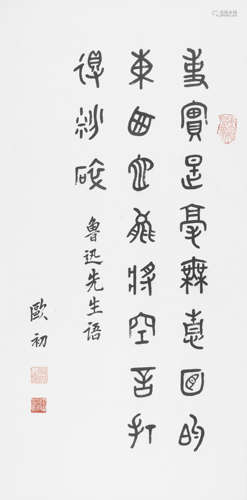 事實是毫無情面的
東西它能將空言打
得粉碎
魯迅先生语
歐初